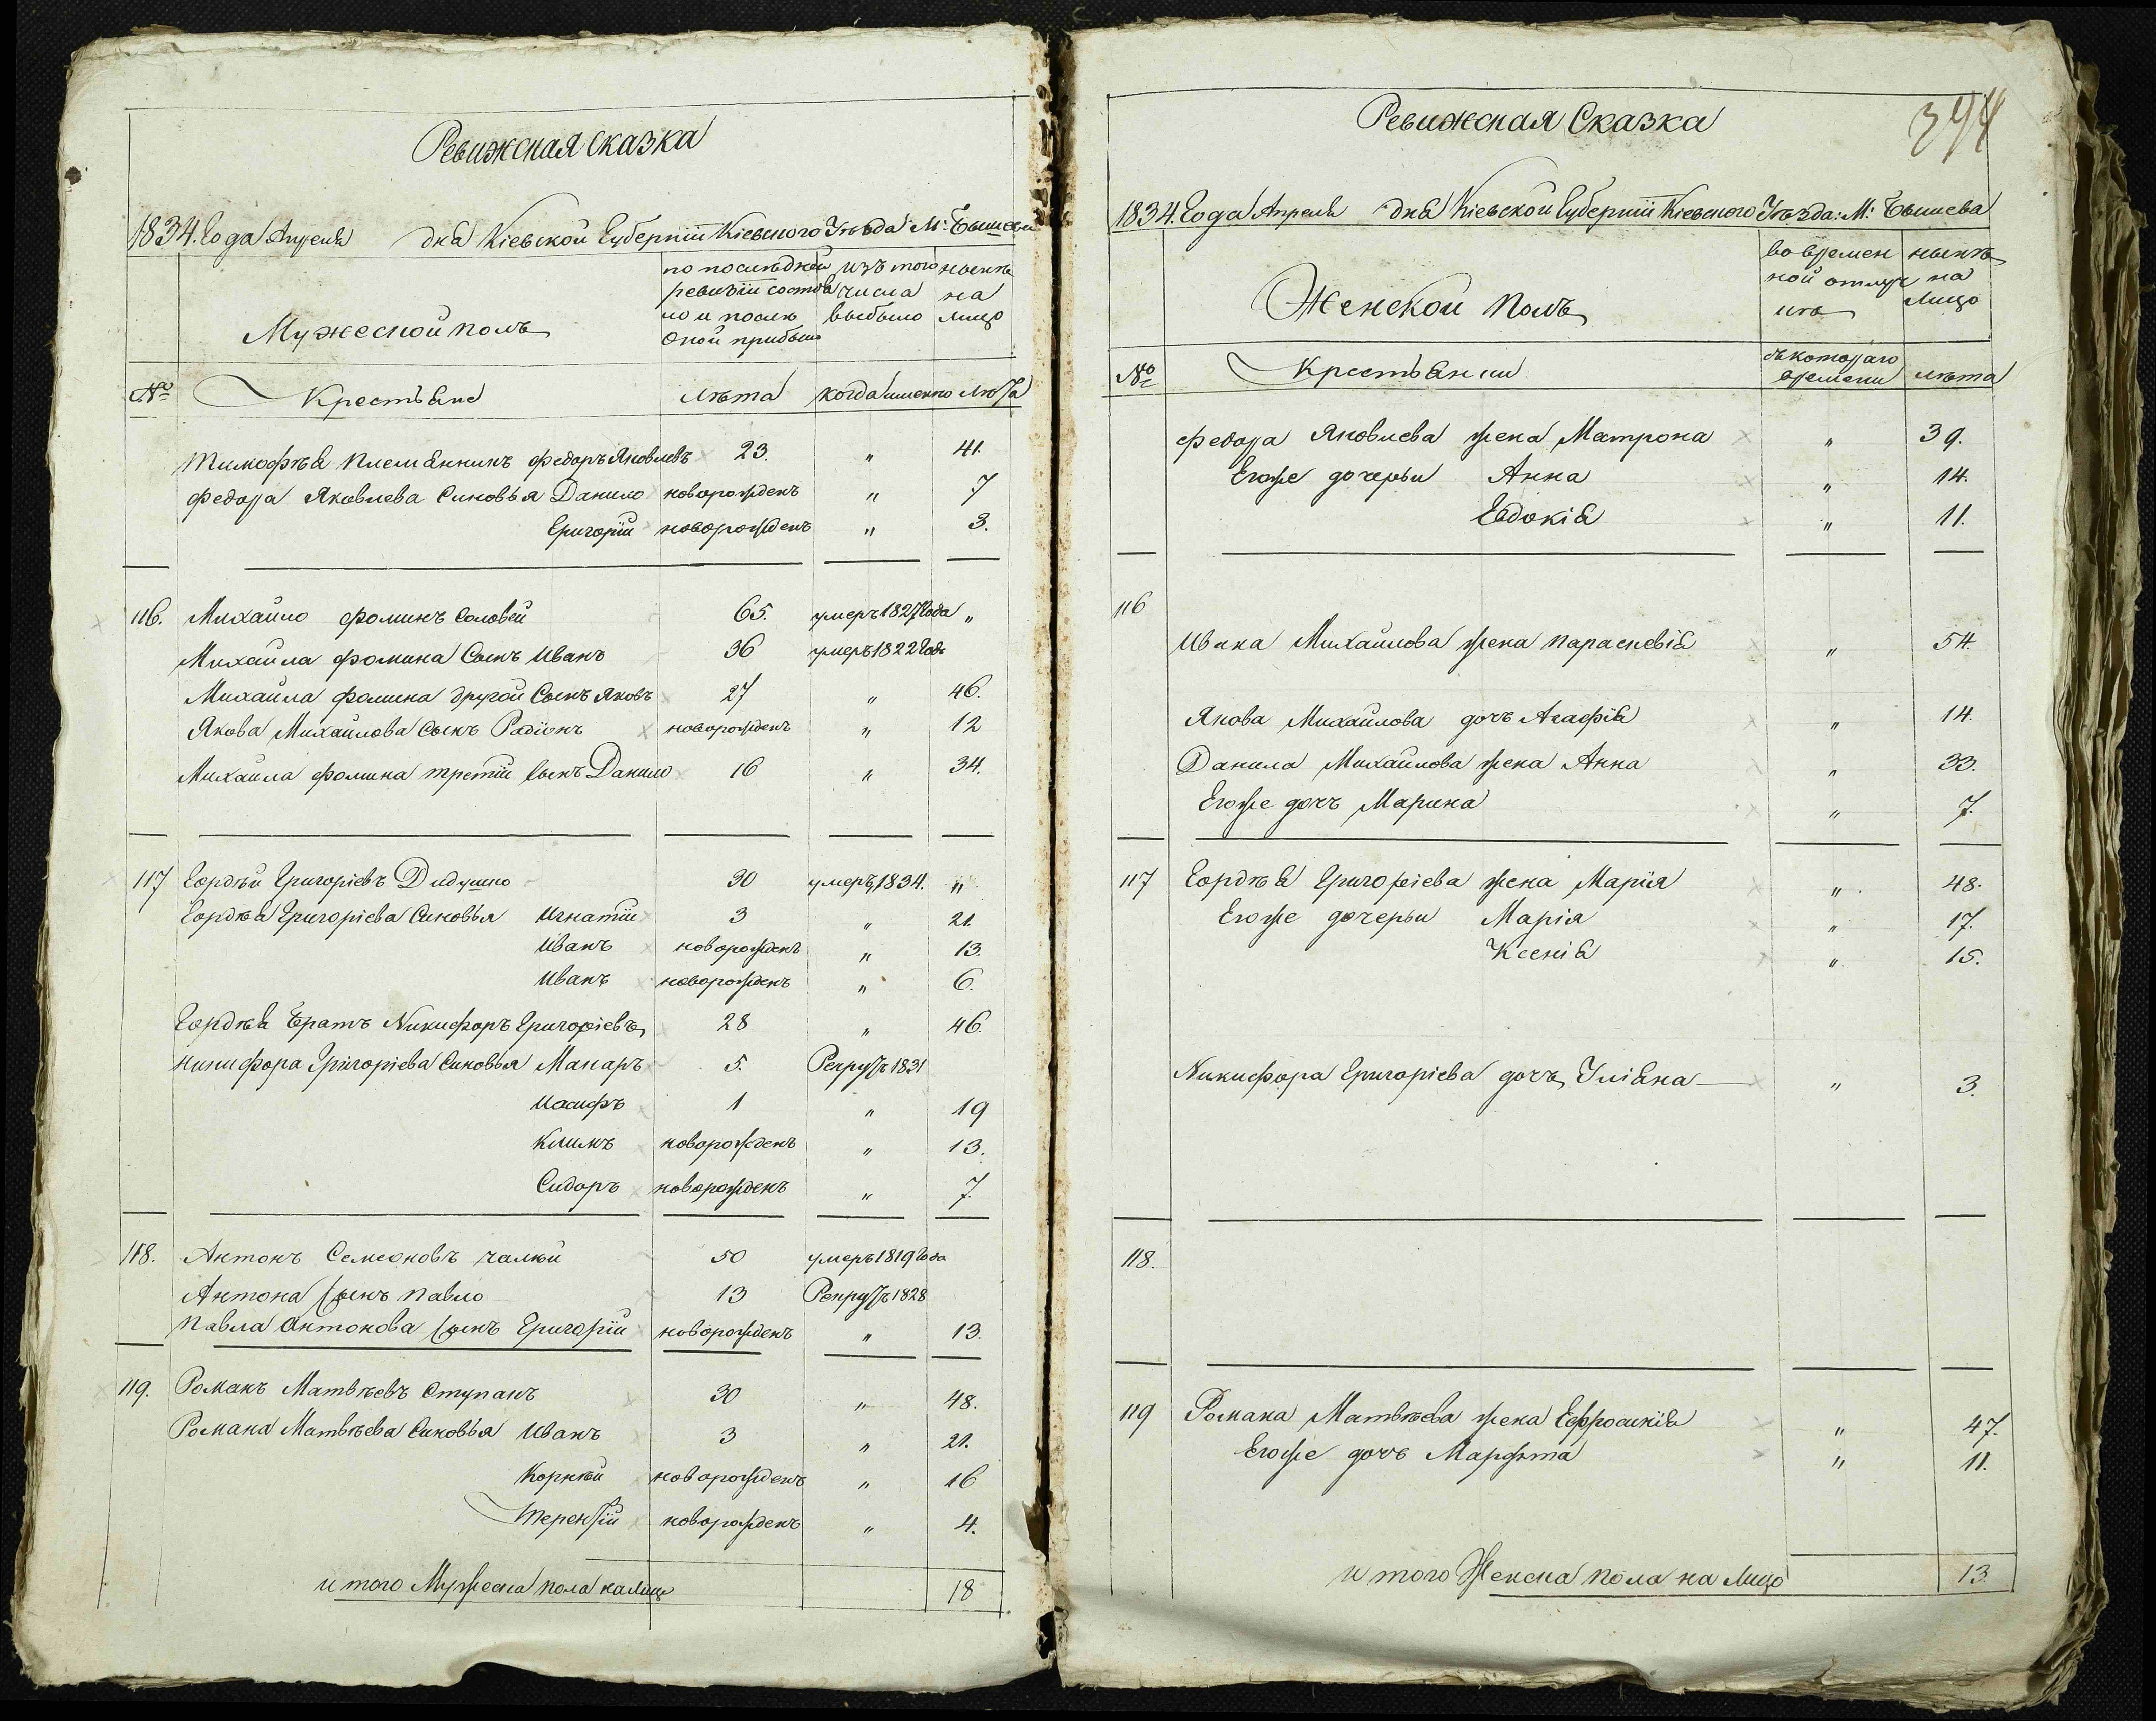 Ревижская сказка
1834. Года Апреля дня Кіевской Губерніи Кіевского Уѣзда М: Бышева
Мужеской полъ
по последней ревизіи состояло и после оной прибыло
изъ того числа выбыло
ныне на лицо
№ Крестьяне лѣта когда именно лѣта
Тимофѣя племянникъ Федоръ Яковлевъ 23. " 41.
Федора Яковлева Сыновья Данило новорожденъ " 7
Григорій новорожденъ " 3.
116. Михайло Фоминъ Соловей 65. умеръ 1827 Года "
Михайла Фомина Сынъ Иванъ 36 умеръ 1822 Года
Михайла Фомина другой Сынъ Яковъ 27 " 46.
Якова Михайлова Сынъ Радіонъ новорожденъ " 12
Михайла Фомина третій Сынъ Данило 16 " 34.
117 Гордѣй Григоріевъ Дидушко 30 умеръ 1834. "
Гордѣя Григоріева Сыновья Игнатій 3 " 21.
Иванъ новорожденъ " 13.
Иванъ новорожденъ " 6.
Гордѣя Братъ Никифоръ Григоріевъ 28 " 46.
Никифора Григоріева Сыновья Макаръ 5. Рекрутъ 1831
Иосифъ 1 " 19
Климъ новорожденъ " 13.
Сидоръ новорожденъ " 7.
118. Антонъ Семеоновъ Чалый 50 умеръ 1819 Года
Антона Сынъ Павло 13 Рекрутъ 1828
Павла Антонова Сынъ Григорій новорожденъ " 13.
119. Романъ Матвѣевъ Ступакъ 30 " 48.
Романа Матвѣева Сыновья Иванъ 3 " 21.
Корнѣй новорожденъ " 16
Терентій новорожденъ " 4.
и того Мужеска пола на лицо 18
394
Ревижская Сказка
1834. Года Апреля дня Кіевской Губерніи Кіевского Уѣзда: М: Бышева
Женской полъ
во временной отлучке
ныне на лицо
№ Крестьянки съ котораго времени лѣта
Федора Яковлева жена Матрона " 39.
Егоже дочерьи Анна " 14.
Евдокія " 11.
116
Ивана Михайлова жена Параскевія " 54.
Якова Михайлова дочь Агафія " 14.
Данила Михайлова жена Анна " 33.
Егоже дочь Марина " 7.
117 Гордѣя Григоріева жена Марія " 48.
Егоже дочерьи Марія " 17.
Ксенія " 15.
Никифора Григоріева дочь Уліяна " 3.
118.
119 Романа Матвѣева жена Ефросинія " 47.
Егоже дочь Марфѣта " 11.
и того Женска пола на лицо 13